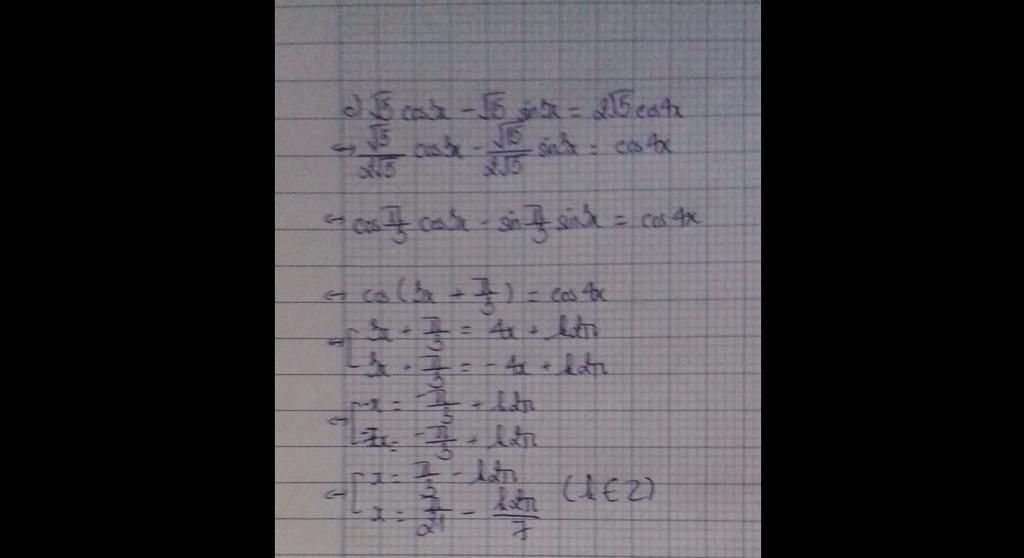 c) √5 cos3x - √15 sin3x = 2√5 cos4x
⇔ √5/2√5 cos3x - √15/2√5 sin3x = cos4x
⇔ cos π/3 cos3x - sin π/3 sin3x = cos4x
⇔ cos(3x + π/3) = cos4x
⇔ [ 3x + π/3 = 4x + k2π
3x + π/3 = -4x + k2π
⇔ [ -x = -π/3 + k2π
7x = -π/3 + k2π
⇔ [ x = π/3 - k2π
x = π/21 - k2π/7 (k ∈ Z)